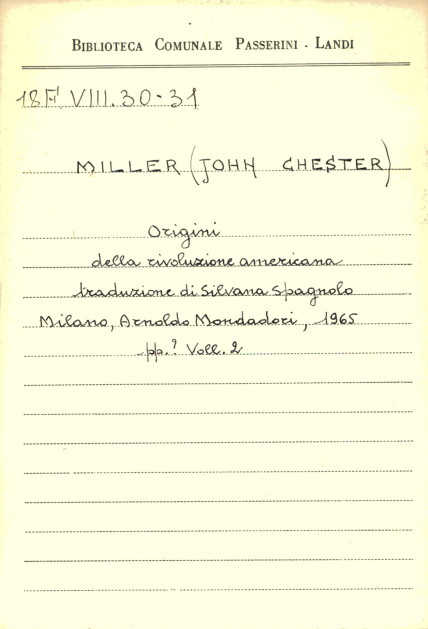 BIBLIOTECA COMUNALE PASSERINI - LANDI
18F VIII.30-31
MILLER (JOHN CHESTER)
Origini
della rivoluzione americana
traduzione di Silvana Spagnolo
Milano, Arnoldo Mondadori, 1965
pp.? Voll. 2